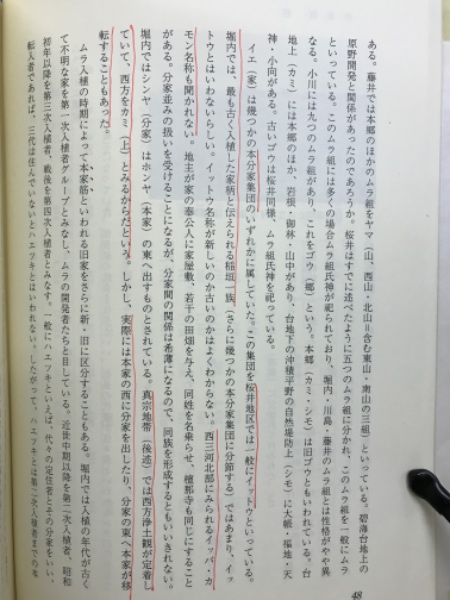 ある。藤井では本郷のほかのムラ組をヤマ(山、西山・北山=含む東山・南山の三組)といっている。碧海台地上の
原野開発と関係があったのであろうか。桜井はすでに述べたように五つのムラ組に分かれ、このムラ組を一般にムラ
といっている。このムラ組には多くの場合ムラ組氏神が祀られており、堀内・川島・藤井のムラ組とは性格がやや異
なる。小川には九つのムラ組があり、これをゴウ(郷)という。本郷(カミ・シモ)は旧ゴウともいわれている。台
地上(カミ)には本郷のほか、岩根・御林・山中があり、台地下の沖積平野の自然堤防上(シモ)に大縄・福地・天
神・小向がある。古いゴウは桜井同様、ムラ組氏神を祀っている。
イエ(家)は幾つかの本分家集団のいずれかに属していた。この集団を桜井地区では一般にイットウといっている。
堀内では、最も古く入植した家柄と伝えられる稲垣一族(さらに幾つかの本分家集団に分節する)ではあまり、イッ
トウとはいわないらしい。イットウ名称が新しいのか古いのかはよくわからない。西三河北部にみられるイッパ・カ
モン名称も聞かれない。地主が家の奉公人に家屋敷、若干の田畑を与え、同姓を名乗らせ、檀那寺も同じにすること
がある。分家並みの扱いを受けることになるが、分家間の関係は希薄になるので、同族を形成するともいいきれない。
堀内ではシンヤ(分家)はホンヤ(本家)の東へ出すものとされている。真宗地帯(後述)では西方浄土観が定着し
ていて、西方をカミ(上)とみるからだという。しかし、実際には本家の西に分家を出したり、分家の東へ本家が移
転することもあった。
ムラ入植の時期によって本家筋といわれる旧家をさらに新・旧に区分することもある。堀内では入植の年代が古く
て不明な家を第一次入植者グループとみなし、ムラの開発者たちと目している。近世中期以降を第二次入植者、昭和
初年以降を第三次入植者、戦後を第四次入植者とみなす。一般にハエツキといえば、代々の定住者とその分家をいい、
転入者であれば、三代は住んでいないとハエツキとはいわれない。したがって、ハエツキとは第二次入植者までの本
48